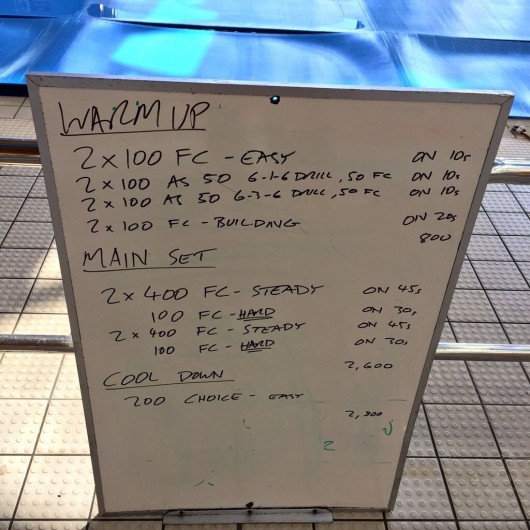 WARM UP
2 x 100 FC - EASY ON 10s
2 x 100 AS 50 6-1-6 DRILL, 50 FC ON 10s
2 x 100 AS 50 6-3-6 DRILL, 50 FC ON 10s
2 x 100 FC - BUILDING ON 20s
800
MAIN SET
2 x 400 FC - STEADY ON 45s
100 FC - HARD ON 30s
2 x 400 FC - STEADY ON 45s
100 FC - HARD ON 30s
2,600
COOL DOWN
200 CHOICE - EASY
2,800